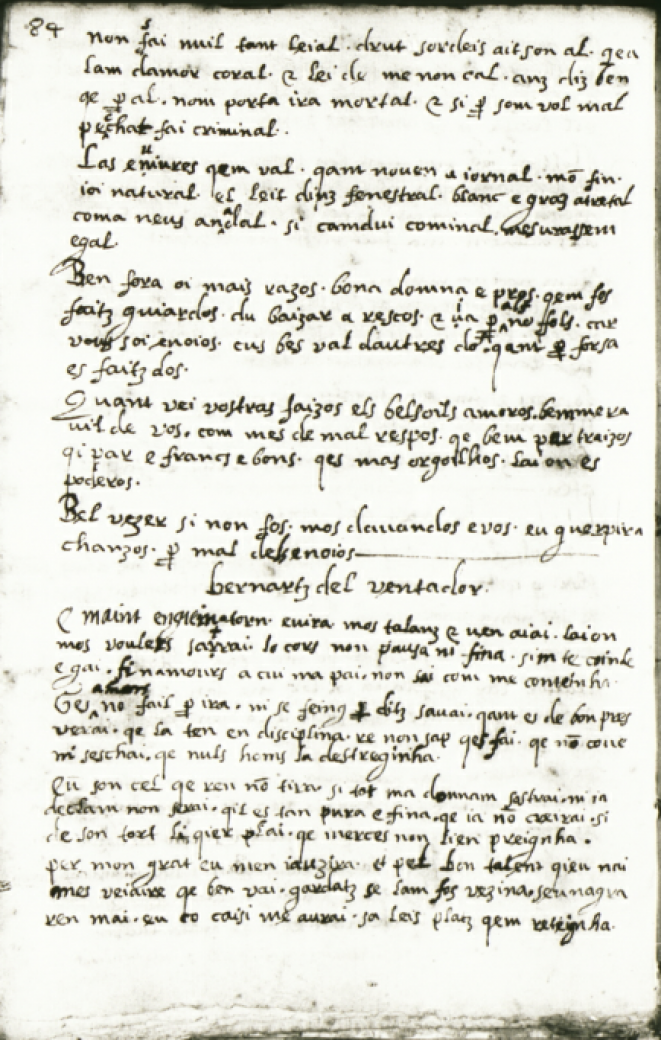 84
non fai nuil tant leial · drut sordeis aitson al · qea
lam damor coral · & lei de me non cal · anz diz ben
qe p al · nom porta ira mortal · & si p som vol mal
pechat fai criminal ·
Las enuires qem val · qant noven a iornal · mō fin ·
ioi natural · el leis dinz fenestral · blanc e gros atretal
coma neus andal · si camdui cominal · mesurassem
egal ·
Ben fora oi mais razos · bona domna e pros · qem fos
faitz guiardos · du baizar a rescos · & ia p als no fols · car
vous soi enoios · cus bes val dautres do · qant p forsa
es faitz dos ·
Quant vei vostras faizos els belsoils amoros · bemmera
vil de vos · com mes de mal respos · qe bem par traizos
qi par e francs e bons · qes mas orgoillios · lai on es
poderos ·
Bel vezer si non fos · mos davandos e vos · eu guerpira
chanzos · p mal dels enoios
bernartz del ventador ·
E maint engieinatorn · evira mos talanz & ven aiai · laion
mos voulers satrai · lo cors non pausa ni fina · sim te coinde
e gai · fin amours a cui ma pai · non sai com me conteinha ·
Ges amors no fail p ira · ni se feing p ditz savai · qant es de bon pres
verai · qe la ten en disciplina · re non sap qes fai · qe nō cove
ni seschai · qe nuls homs la destreginha ·
Eu son cel qe ren nō tira · si tot ma domnam sestrai · ni ia
declam non serai · qil es tan pura e fina · qe ia nō creirai · si
de son tort li qier plai · qe merces non lien preignha ·
per mon grat eu men iauzira · et pel bon talent qieu nai
mes veiaire qe ben vai · gardatz se lam fos vezina · seunagra
ren mai · eu co caisi me aurai · sa leis platz qem reteignha ·